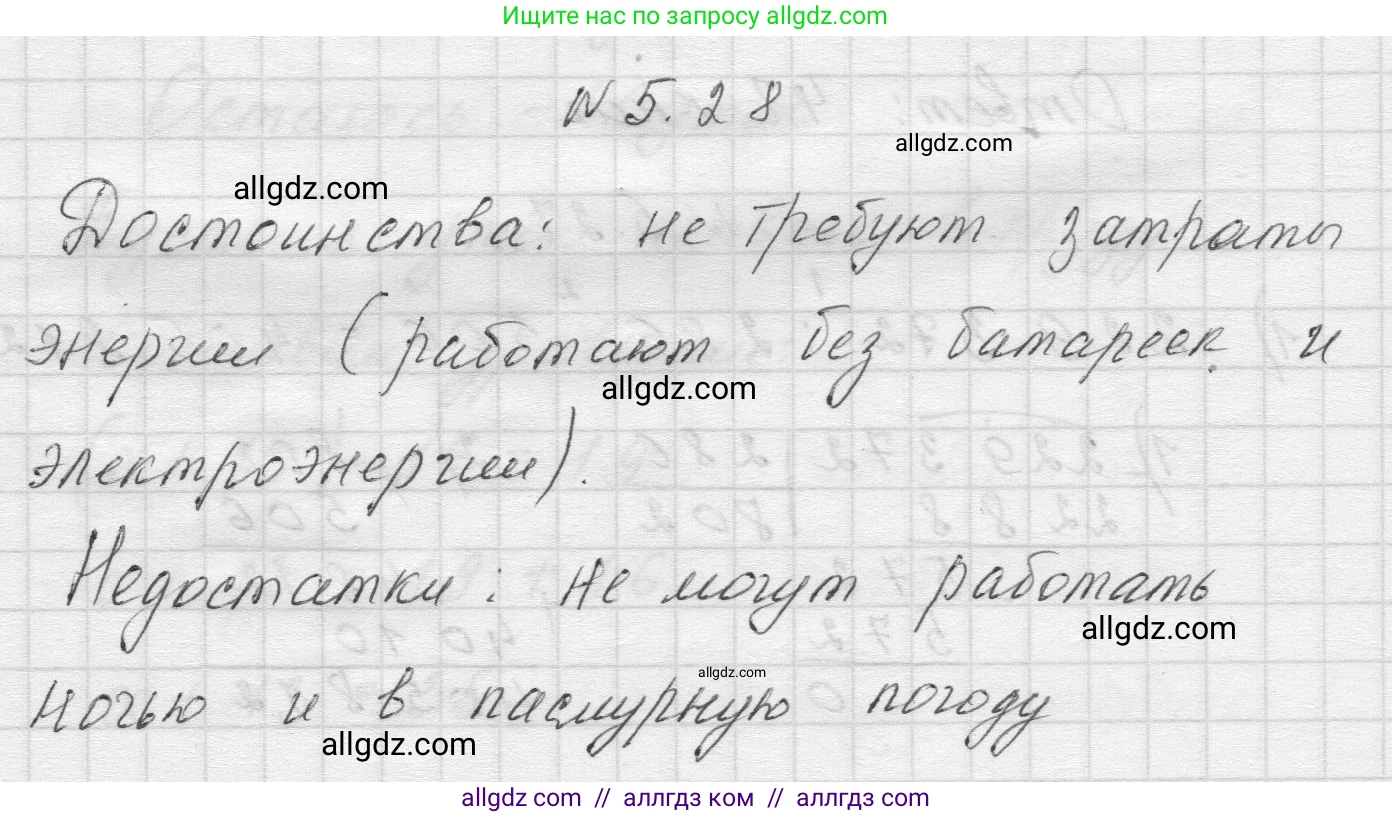 Ищите нас по запросу allgdz.com
№ 5.28
allgdz.com
allgdz.com
Достоинства: не требуют затраты
энергии (работают без батареек и
allgdz.com
электроэнергии).
Недостатки: не могут работать
allgdz.com
allgdz.com
ночью и в пасмурную погоду
allgdz.com
allgdz com // аллгдз ком // аллгдз com